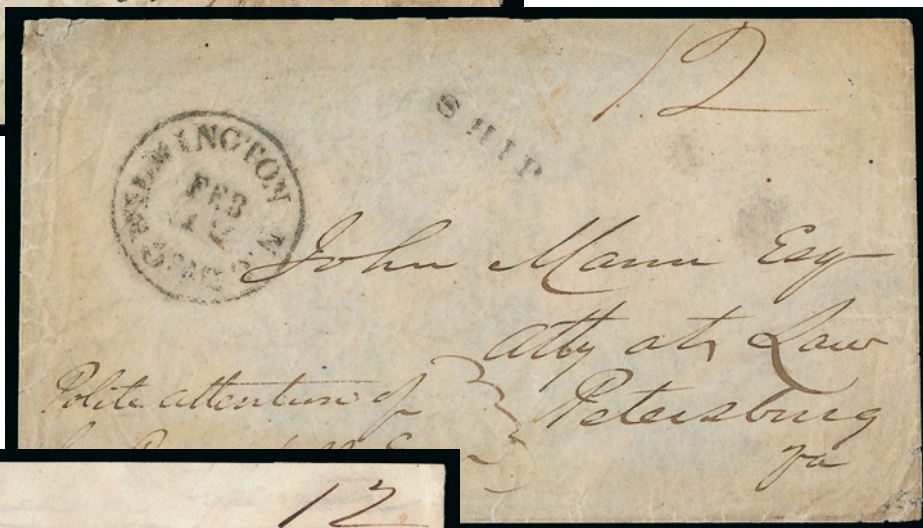 12
SHIP
WILMINGTON N.C.
FEB
5 cts
John Mann Esq
atty at Law
Petersburg
Va
Polite attention of
12